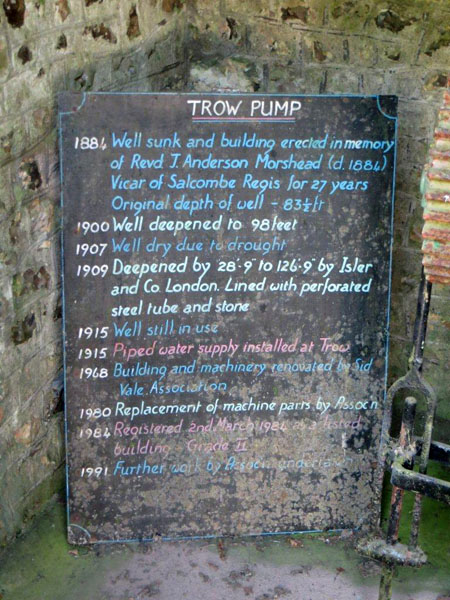 TROW PUMP
1884 Well sunk and building erected in memory
of Revd J. Anderson Morshead (d. 1884)
Vicar of Salcombe Regis for 27 years
Original depth of well - 83½ft
1900 Well deepened to 98 feet
1907 Well dry due to drought
1909 Deepened by 28'-9" to 126'-9" by Isler
and Co. London. Lined with perforated
steel tube and stone
1915 Well still in use
1915 Piped water supply installed at Trow
1968 Building and machinery renovated by Sid
Vale Association
1980 Replacement of machine parts by Assoc'n
1984 Registered 2nd March 1984 as a listed
building - Grade II
1991 Further work by Assocn.